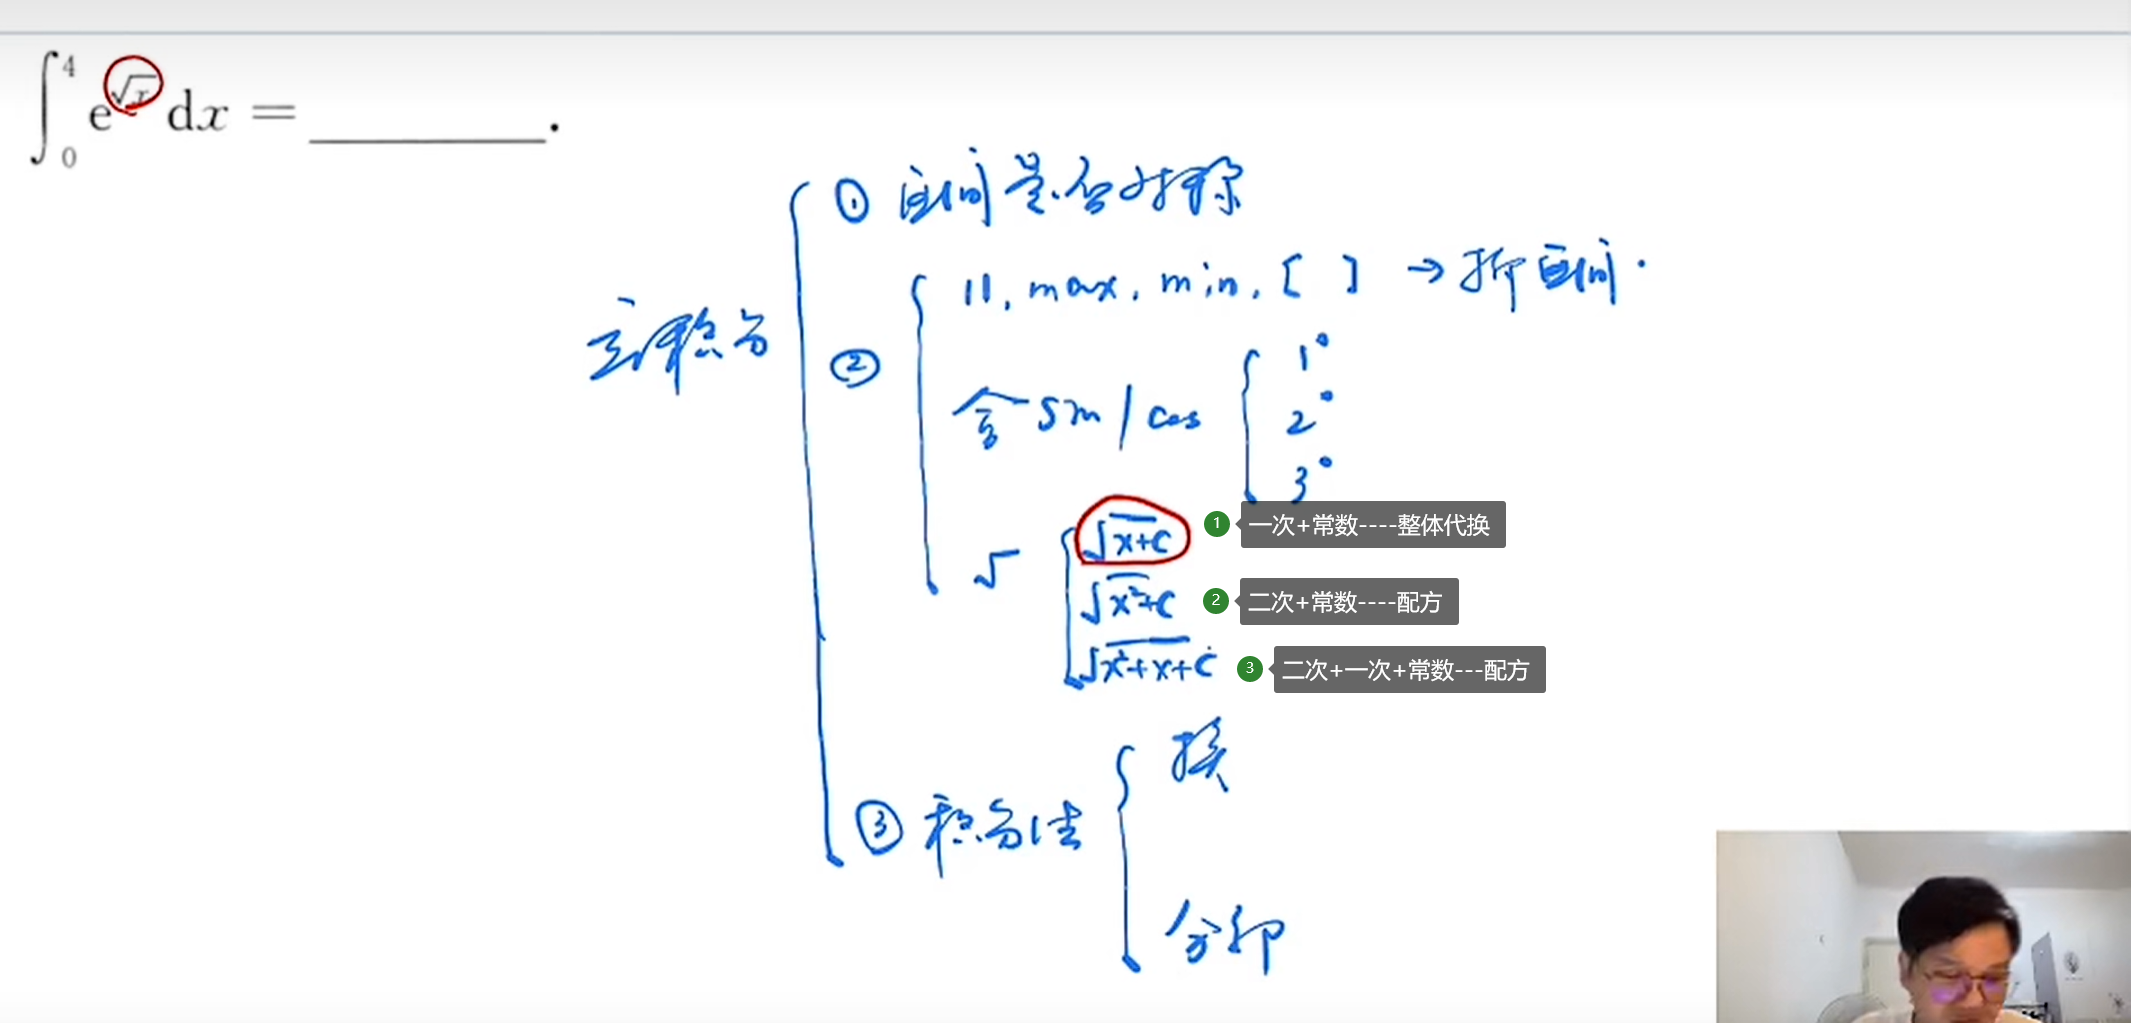 ∫₀⁴ e^√x dx = ________.
定积分
① 区间是否对称
② | |, max, min, [ ] → 拆区间.
含 sin / cos
1°
2°
3°
√
√x+c
1 一次+常数----整体代换
√x²+c
2 二次+常数----配方
√x²+x+c
3 二次+一次+常数---配方
③ 积分法
换
分部